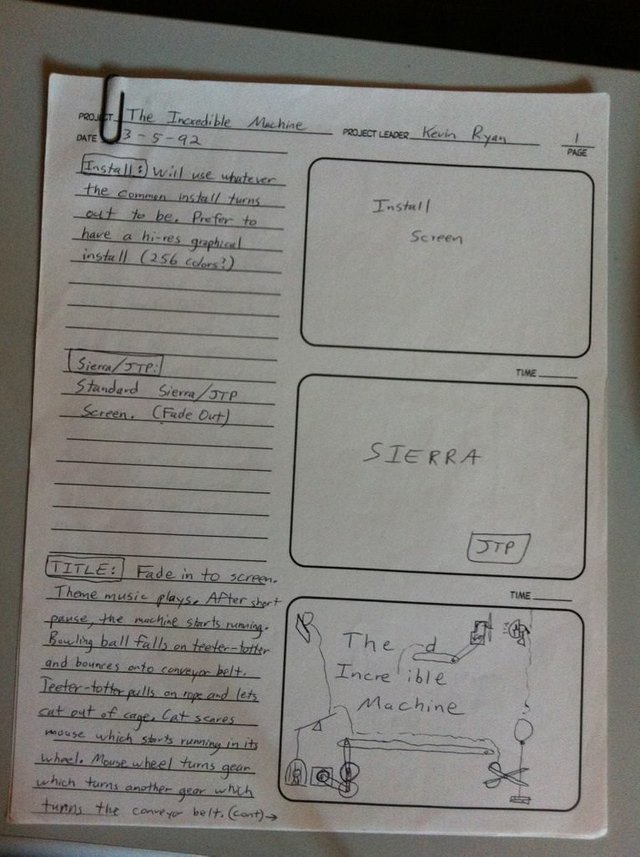 PROJECT The Incredible Machine PROJECT LEADER Kevin Ryan 1
DATE 3-5-92 PAGE
Install: Will use whatever
the common install turns
out to be. Prefer to
have a hi-res graphical
install (256 colors?)
Install
Screen
TIME
Sierra/JTP:
Standard Sierra/JTP
Screen. (Fade Out)
SIERRA
JTP
TIME
TITLE: Fade in to screen.
Theme music plays. After short
pause, the machine starts running.
Bowling ball falls on teeter-totter
and bounces onto conveyor belt.
Teeter-totter pulls on rope and lets
cat out of cage. Cat scares
mouse which starts running in its
wheel. Mouse wheel turns gear
which turns another gear which
turns the conveyor belt. (cont)→
The
Incre d ible
Machine